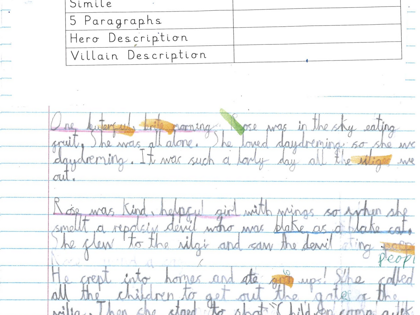 Simile
5 Paragraphs
Hero Description
Villain Description
One morning Rose was in the sky eating
fruit. She was all alone. She loved daydreming so she we
daydreming. It was such a lovly day all the vilige we
out.
Rose was kind, helpful girl with wings so when she
smelt a devil who was blake as a blake cat.
She flew to the vilgi and saw the devil eting
people
He crept into homes and ate ups! She called
all the children to get out the gate or the
Then she to shot "Children come quick